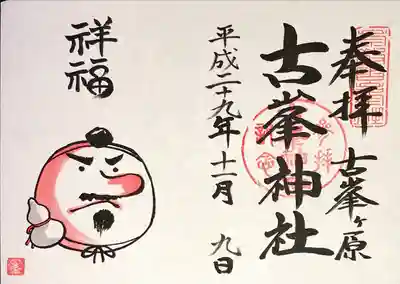 奉拝
古峯ヶ原
古峯神社
平成二十九年十一月九日
祥福